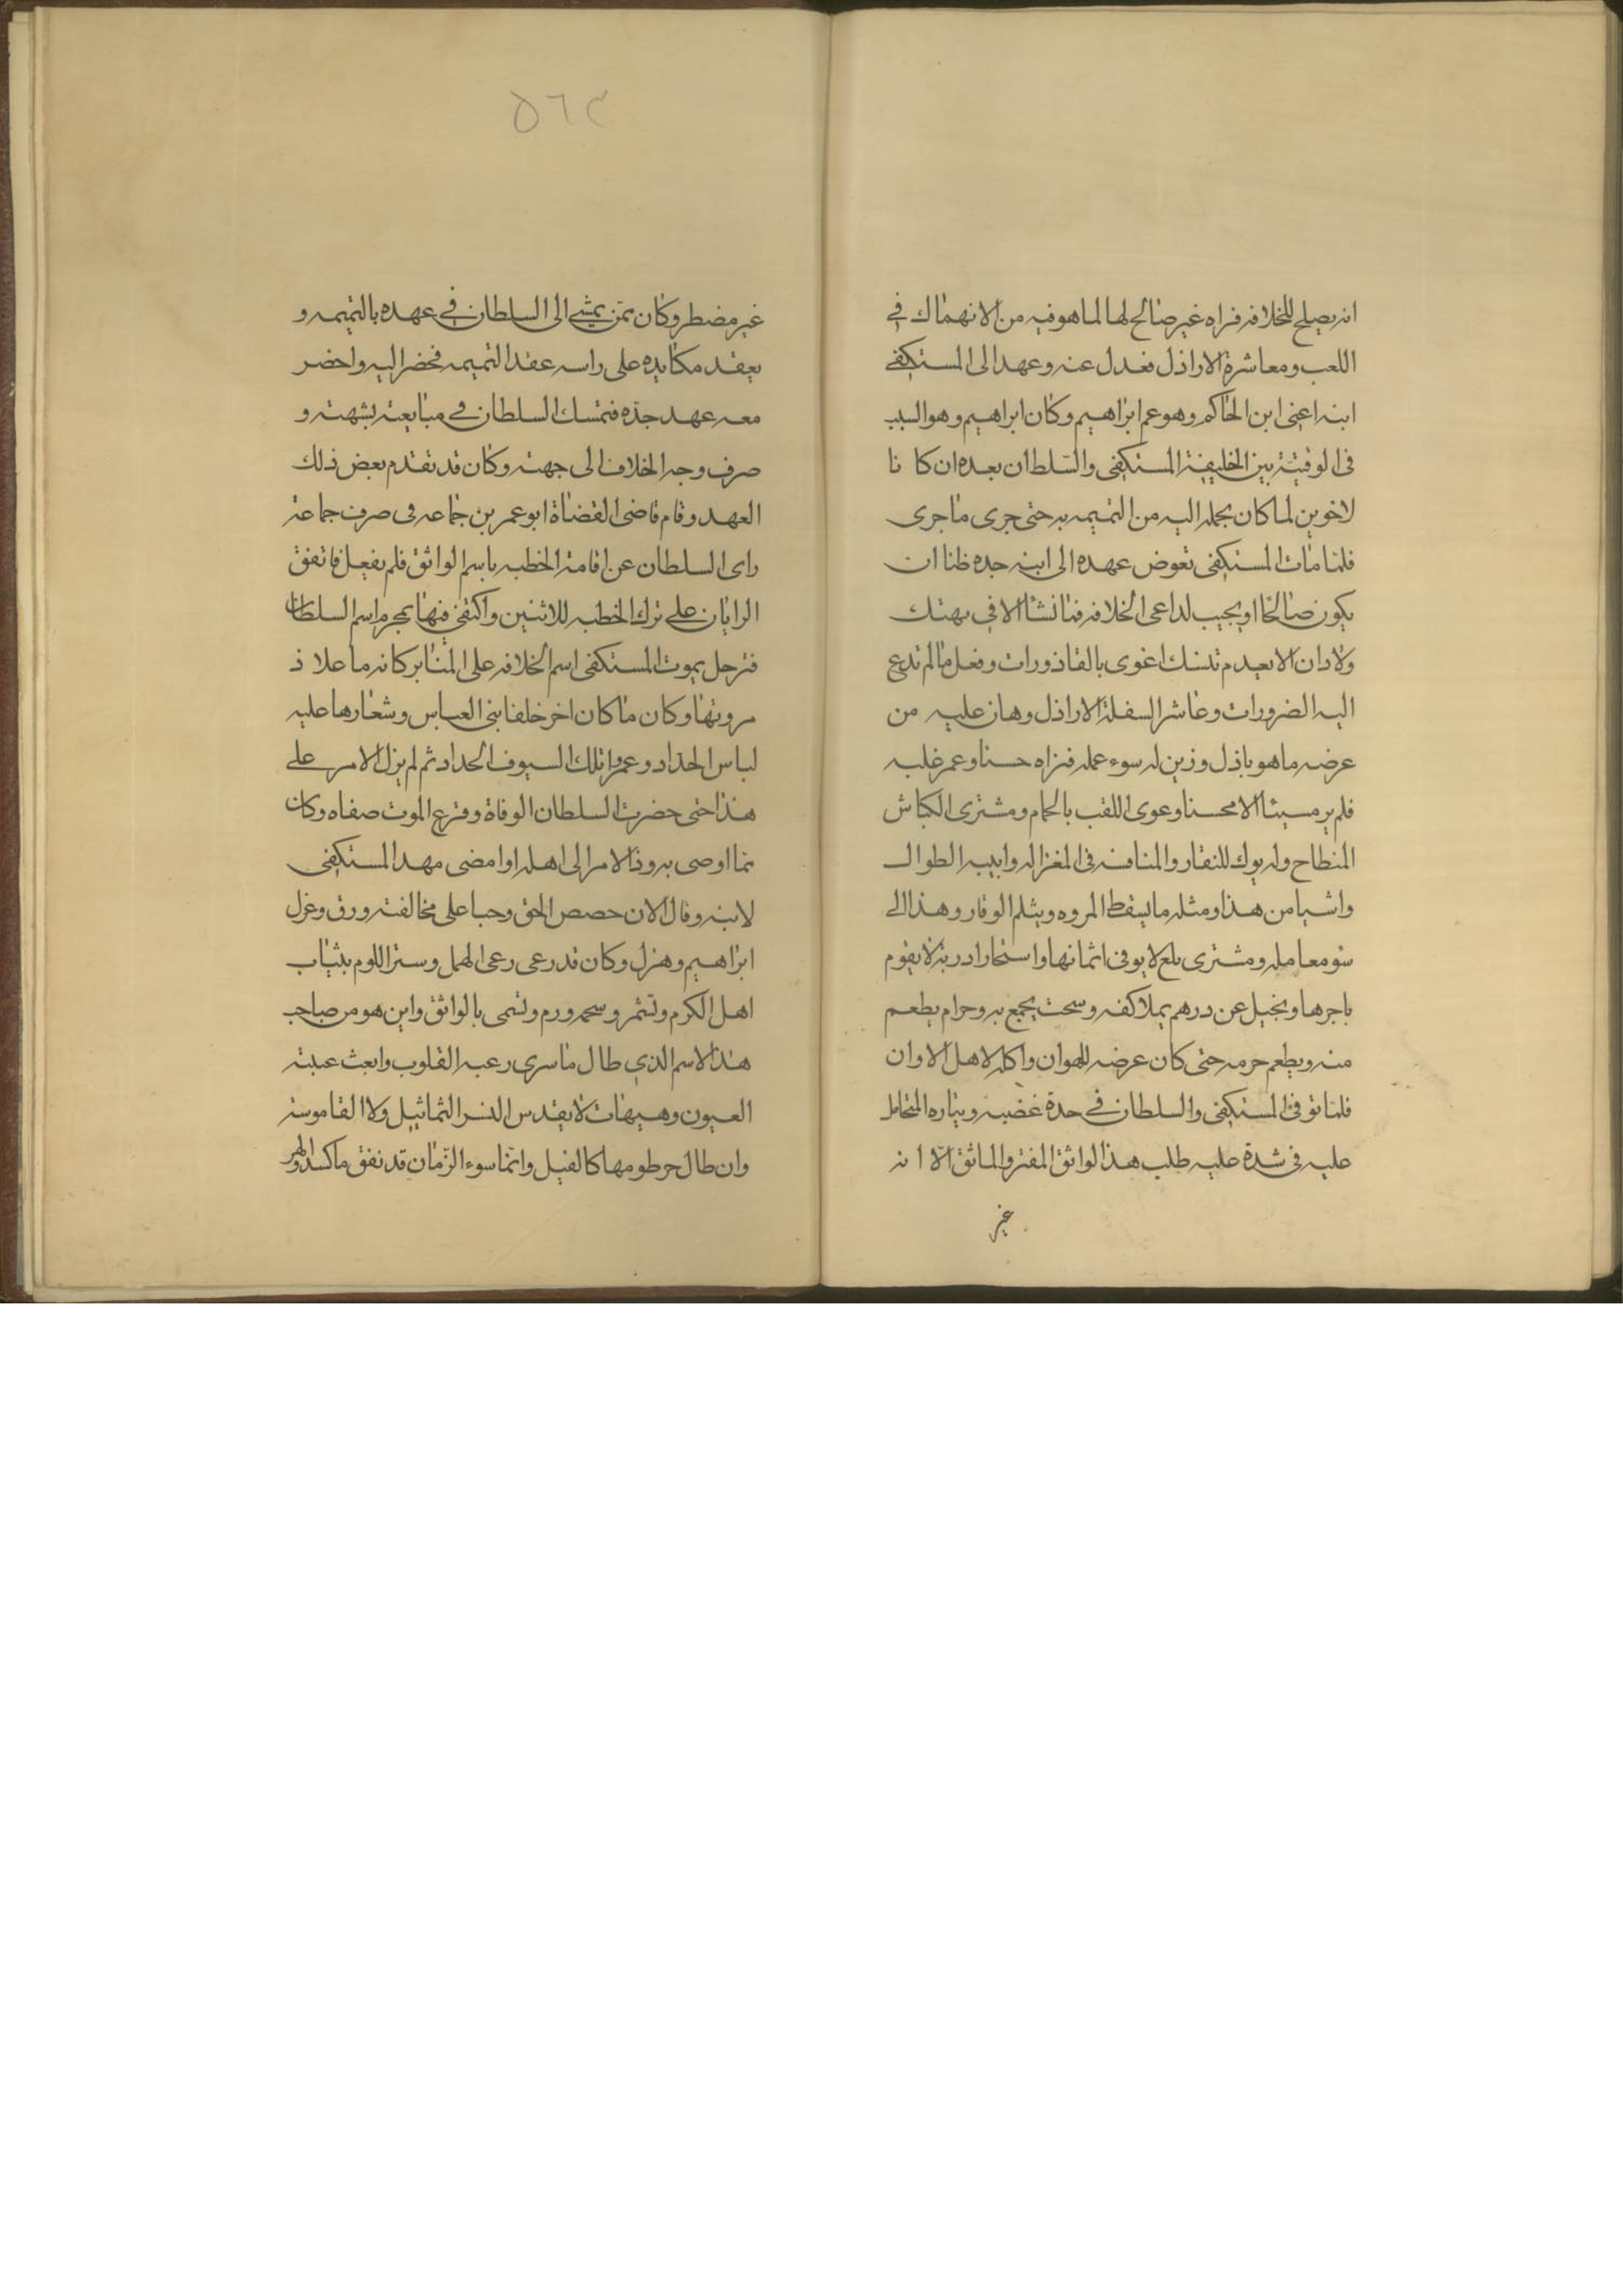 انه يصلح للخلافه فراه غير صالح لها لما هو فيه من الانهماك في
اللعب ومعاشرة الاراذل فعدل عنه وعهد الى المستكفي
ابنه اعنى ابن الحاكم وهو عم ابراهيم وكان ابراهيم وهو السبب
فى الوقيتة بين الخليفة المستكفى والسلطان بعده ان كا نا
لاخوين لما كان يحمله اليه من التميمه به حتى جرى ما جرى
فلما مات المستكفى تعوض عهده الى ابنه جده ظنا ان
يكون صالحا او يجيب لداعى الخلافه فما نشا الا في تهتك
ولا دان الا بعدم تنسك اغوى بالقاذورات وفعل ما لم تدع
اليه الضرورات وعاشر السفلة الاراذل وهان عليه من
عرضه ما هو باذل وزين له سوء عمله فراه حسنا وعمر غلبه
فلم ير مسيئا الا محسنا وعوى اللقب بالحمام ومشترى الكباش
المنطاح وله يوك للنقار والمنافسه فى المغزاله وابيبه الطوال
واشيا من هذا ومثله ما يسقط المروه ويثلم الوقار وهذا الى
سو معامله ومشترى بلع لا يوفى اثمانها واستحار ادر بة لا يقوم
باجرها وبخيل عن درهم يملا كفه وسحت يجمع به وحرام يطعم
منه ويطعم حرمه حتى كان عرضه للهوان واكله لاهل الاوان
فلما توفى المستكفى والسلطان في حدة غضبه وتياره المتحامل
عليه فى شدة عليه طلب هذا الواثق المفتر والماثق الا ا نه
غير
٥٦٢
غير مضطر وكان ممن يمشي الى السلطان في عهده بالتميمه و
يعقد مكايده على راسه عقد التميمه فحضر اليه واحضر
معه عهد جده فتمسك السلطان في مبايعته بشهته و
صرف وجه الخلاف الى جهته وكان قد تقدم بعض ذلك
العهد وقام قاضى القضاة ابو عمر بن جماعه فى صرف جماعة
راى السلطان عن اقامة الخطبه باسم الواثق فلم يفعل فاتفق
الرايان على ترك الخطبه للاثنين واكتفى فيها بمجرم اسم السلطان
فترحل بموت المستكفى اسم الخلافه على المنابر كانه ما علا ذ
مروتها وكان ما كان اخر خلفا بنى العباس وشعارها عليه
لباس الحداد وعمروا تلك السيوف الحداد ثم لم يزل الامر على
هذا حتى حضرت السلطان الوفاة وقرع الموت صفاه وكان
مما اوصى به رد الامر الى اهله او امضى مهد المستكفى
لابنه وقال الان حصص الحق وحبا على مخالفته ورق وعزل
ابراهيم وهزل وكان قد رعى رعى الهمل وستر اللوم بثياب
اهل الكرم وتشمر وسحم ورم وتسمى بالواثق واين هو من صاحب
هذا الاسم الذي طال ما سرى رعبه القلوب وابعث عبته
العيون وهيهات لا يقدس النسر التماثيل ولا القاموسة
وان طال حرطومها كالفيل وانما سوء الزمان قد نفق ما كسد والهر